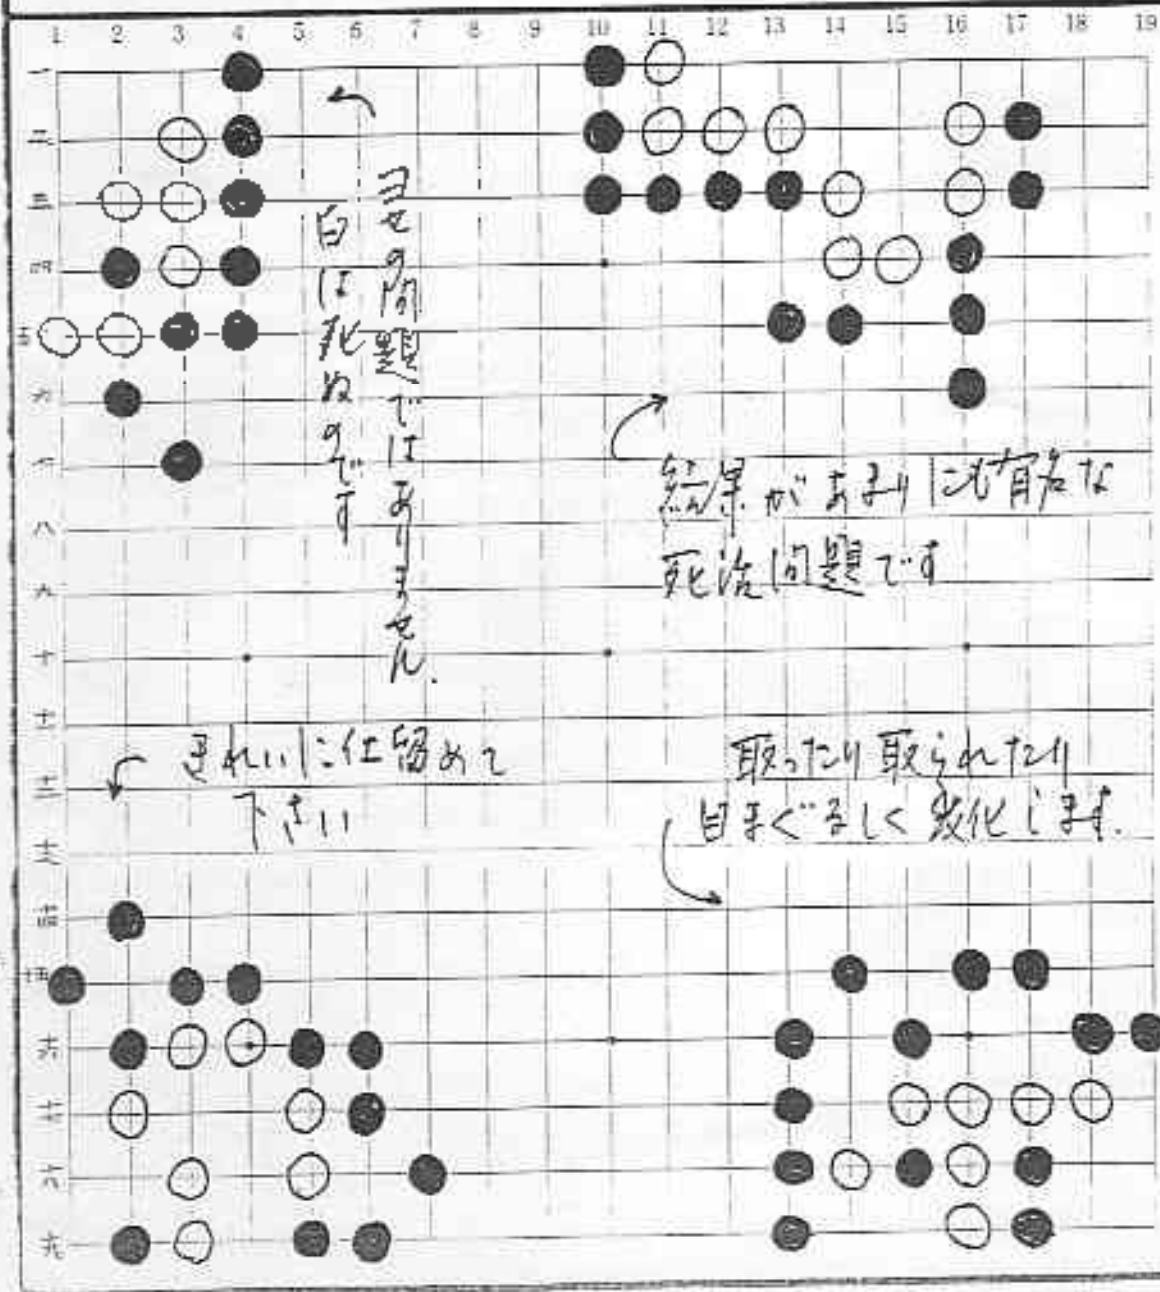 1 2 3 4 5 6 7 8 9 10 11 12 13 14 15 16 17 18 19
一
二
三
四
五
六
七
八
九
十
十一
十二
十三
十四
十五
十六
十七
十八
十九
ヨセの問題ではありません.
白は死ぬのです
結果があまりにも有名な
死活問題です
きれいに仕留めて
下さい
取ったり取られたり
目まぐるしく変化します.